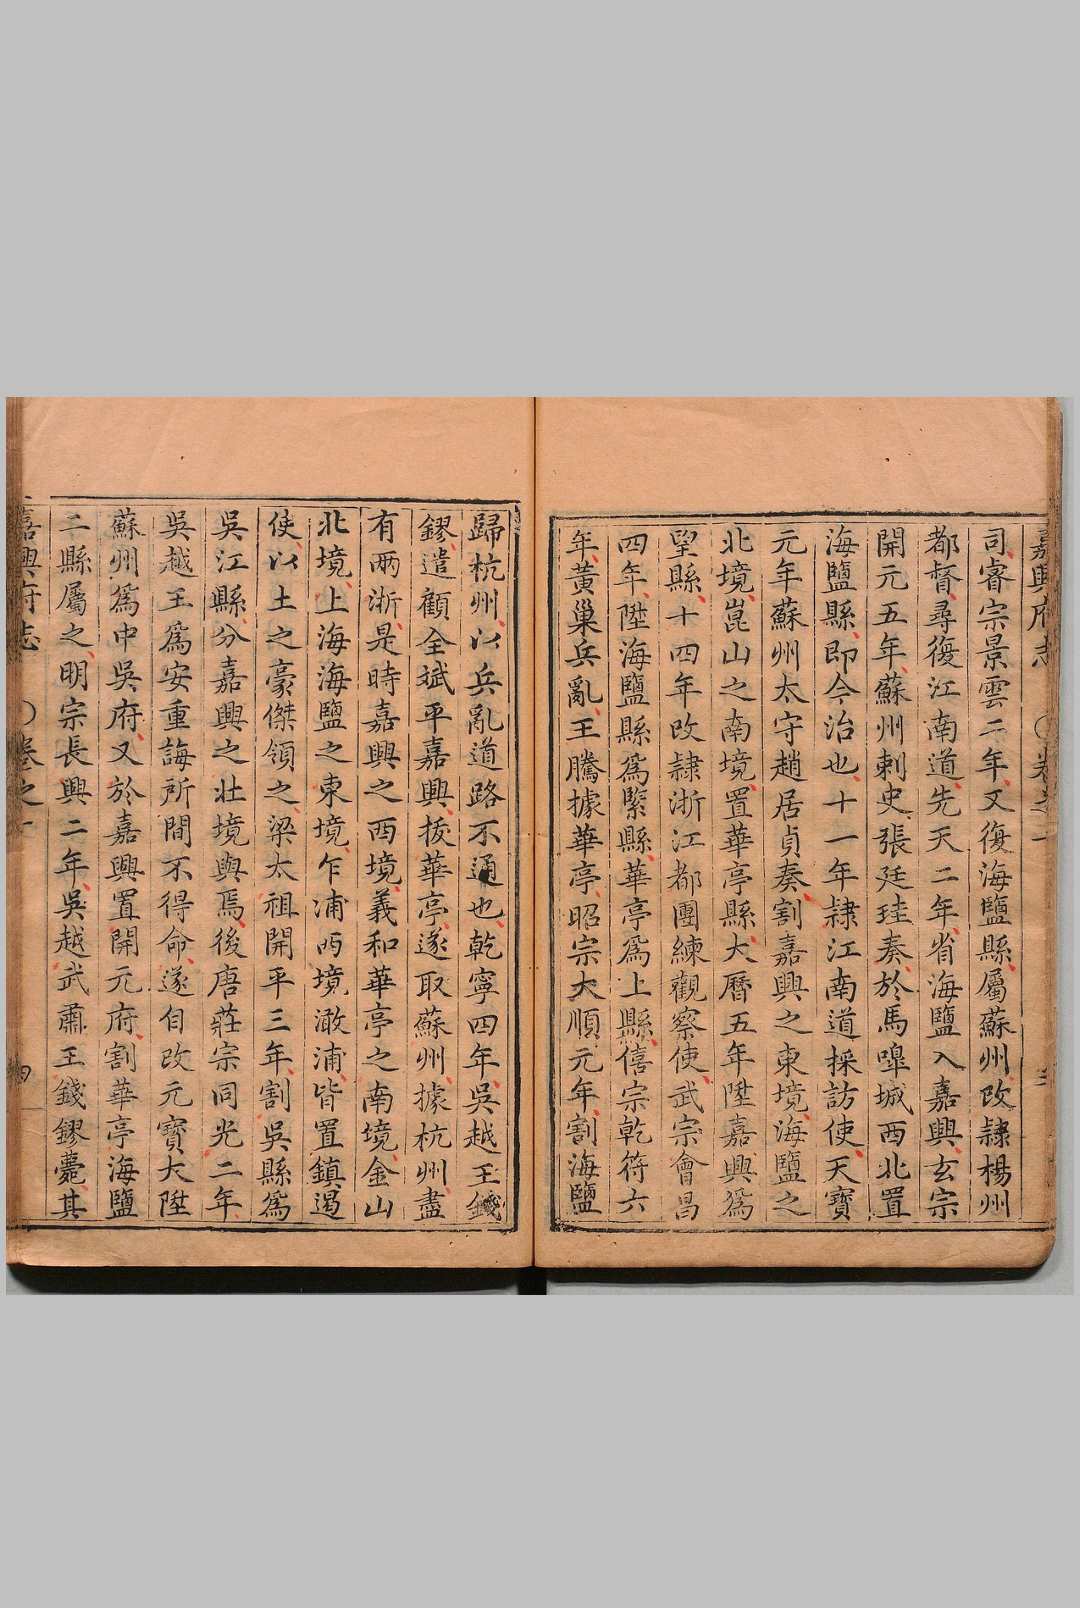 嘉興府志 卷之一
司睿宗景雲二年又復海鹽縣屬蘇州改隷楊州
都督尋復江南道先天二年省海鹽入嘉興玄宗
開元五年蘇州刺史張廷珪奏於馬嘷城西北置
海鹽縣即今治也十一年隷江南道採訪使天寶
元年蘇州太守趙居貞奏割嘉興之東境海鹽之
北境崑山之南境置華亭縣大曆五年陞嘉興爲
望縣十四年改隷浙江都團練觀察使武宗會昌
四年陞海鹽縣爲緊縣華亭爲上縣僖宗乾符六
年黃巢兵亂王騰據華亭昭宗大順元年割海鹽
歸杭州以兵亂道路不通也乾寧四年吳越王錢
鏐遣顧全斌平嘉興拔華亭遂取蘇州據杭州盡
有兩浙是時嘉興之西境義和華亭之南境金山
北境上海海鹽之東境乍浦西境澉浦皆置鎮遏
使以土之豪傑領之梁太祖開平三年割吳縣爲
吳江縣分嘉興之壯境與焉後唐莊宗同光二年
吳越王爲安重誨所間不得命遂自改元寶大陞
蘇州爲中吳府又於嘉興置開元府割華亭海鹽
二縣屬之明宗長興二年吳越武肅王錢鏐薨其
嘉興府志 卷之一 四